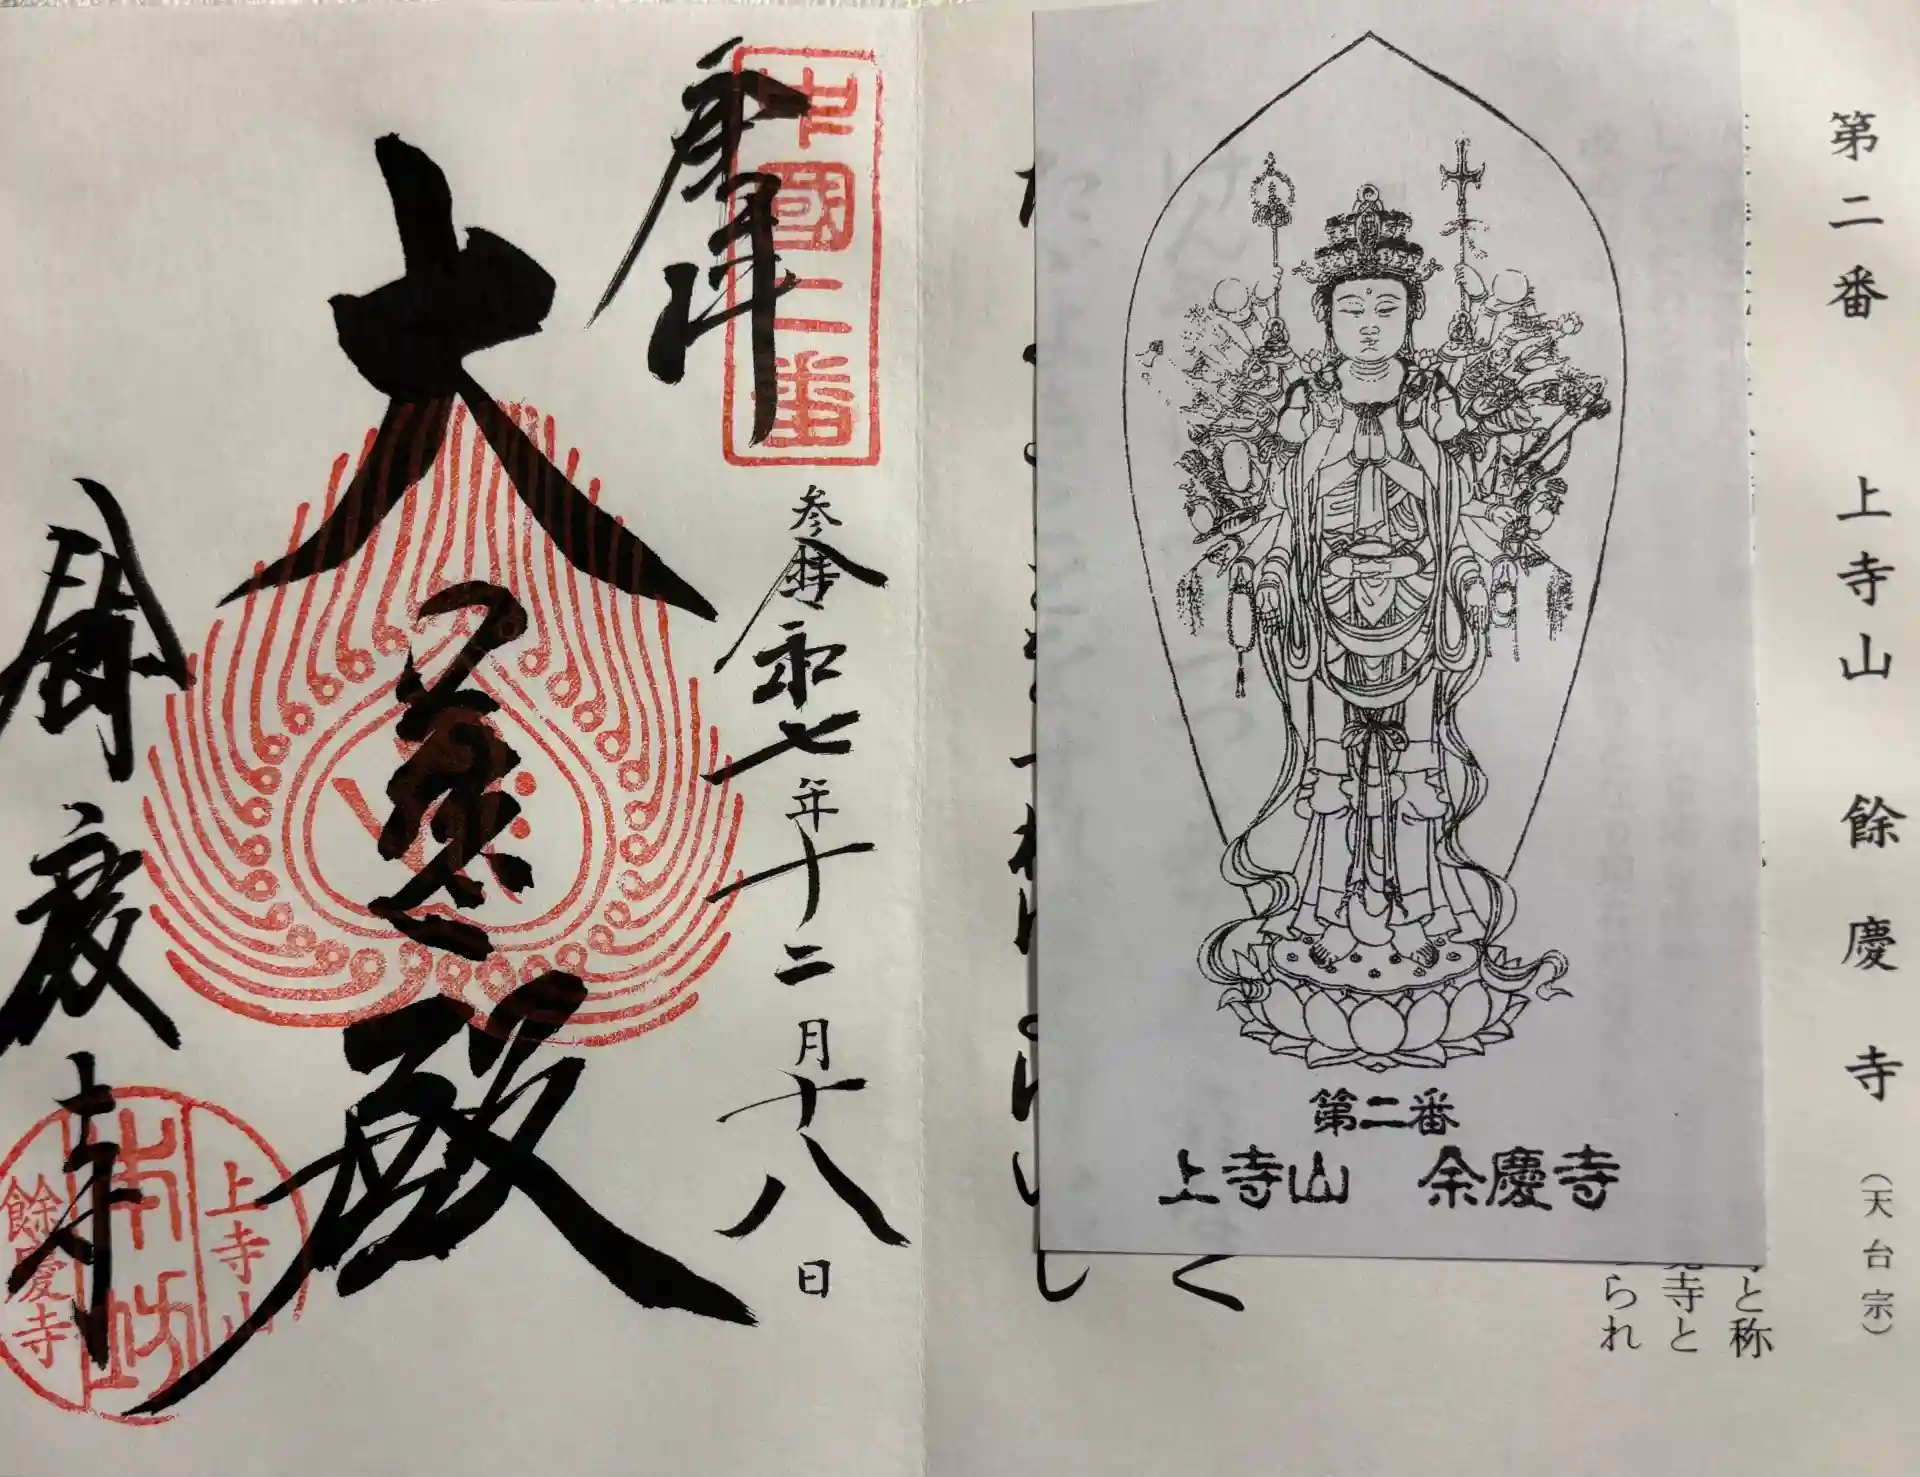 第二番 上寺山 餘慶寺 (天台宗)
と称
寺と
られ
く
第二番
上寺山 余慶寺
中國二番
奉拝
参拝 令和七年十二月十八日
大慈殿
餘慶寺
上寺山
本坊
餘慶寺